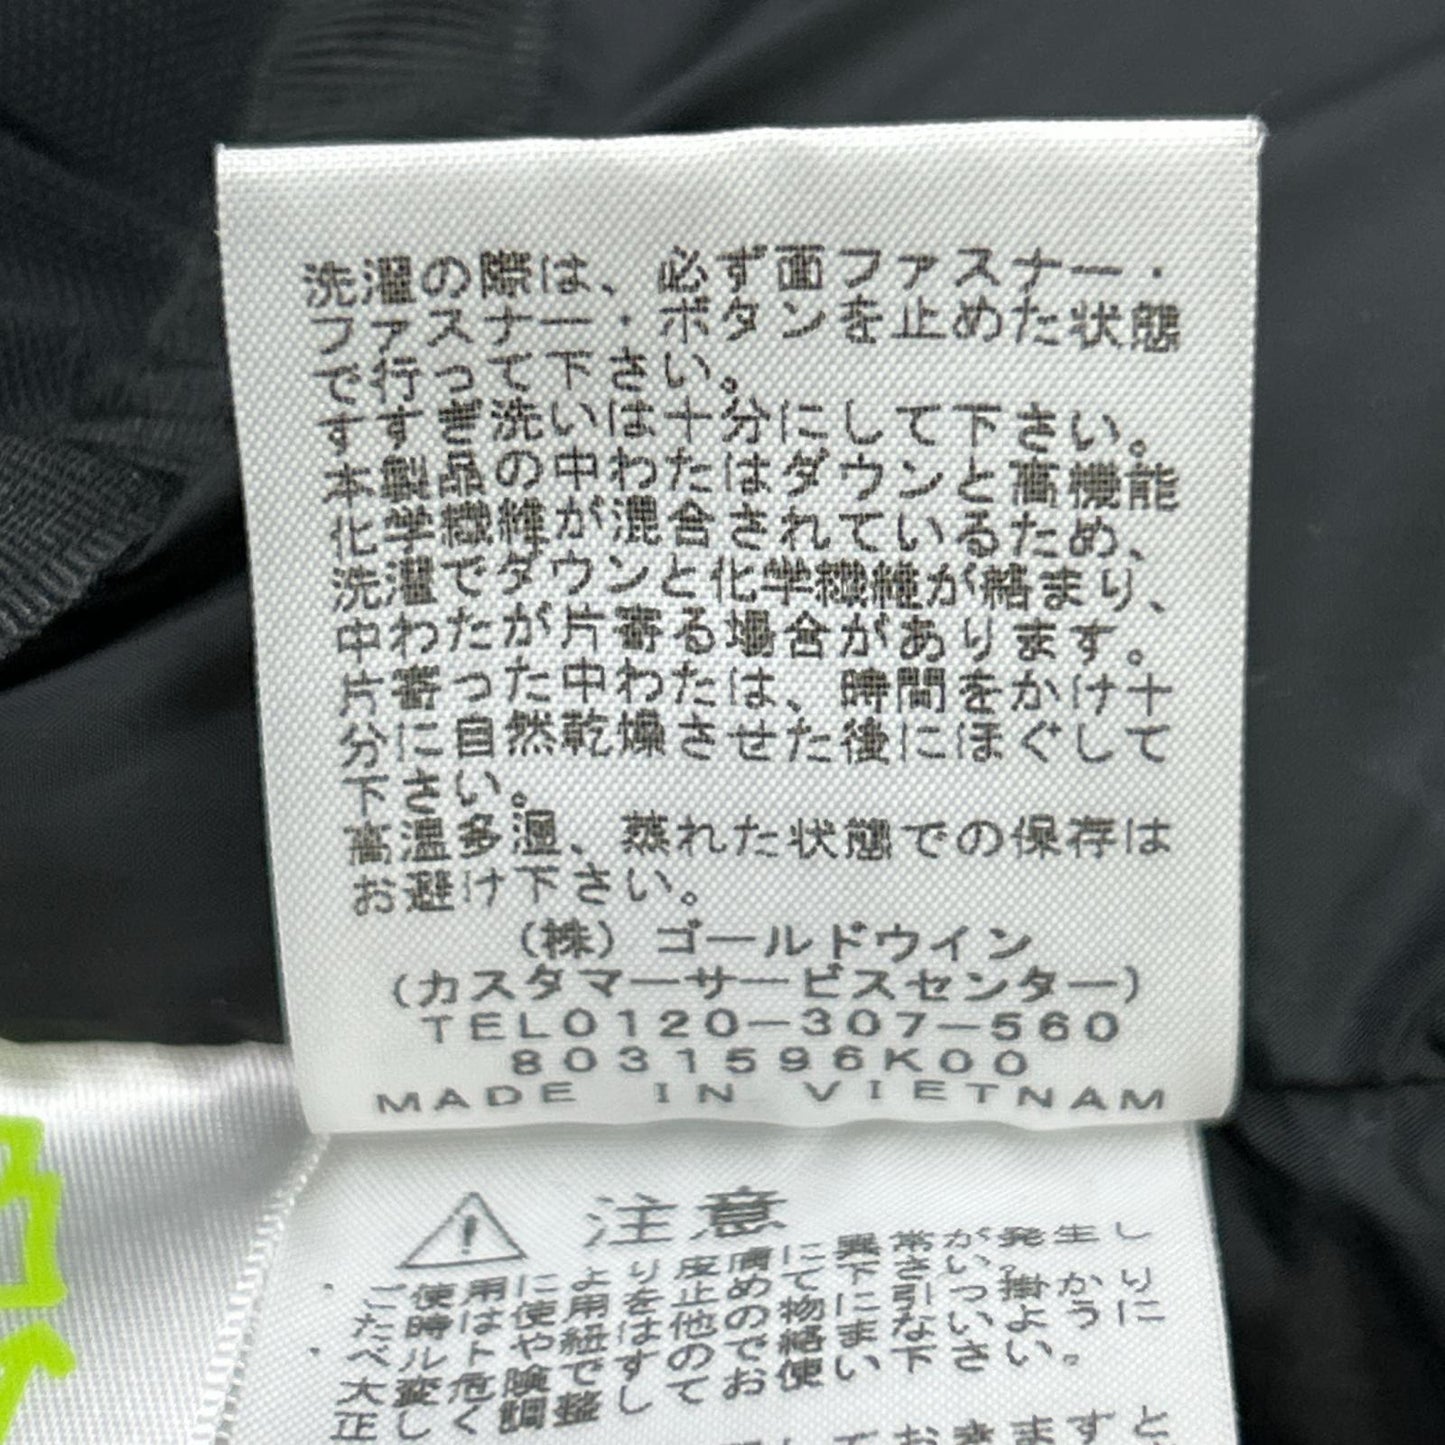 洗濯の際は、必ず面ファスナー・
ファスナー・ボタンを止めた状態
で行って下さい。
すすぎ洗いは十分にして下さい。
本製品の中わたはダウンと高機能
化学繊維が混合されているため、
洗濯でダウンと化学繊維が絡まり、
中わたが片寄る場合があります。
片寄った中わたは、時間をかけ十
分に自然乾燥させた後にほぐして
下さい。
高温多湿、蒸れた状態での保存は
お避け下さい。
(株)ゴールドウイン
(カスタマーサービスセンター)
TEL0120-307-560
8031596K00
MADE IN VIETNAM
注意
・ご使用により皮膚に異常が発生し
た時は使用を止めて下さい。
・ベルトや紐は他の物に引っ掛かり
大変危険ですのでお絡まないように
正しく調整してお使い下さい。
ておきますと